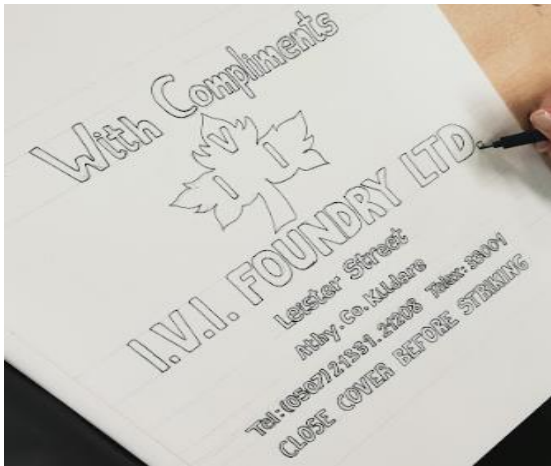 With Compliments
I V I
I.V.I. FOUNDRY LTD.
Leister Street
Athy. Co. Kildare
Tel:(0507) 21331. 21208 Telex: 28004
CLOSE COVER BEFORE STRIKING